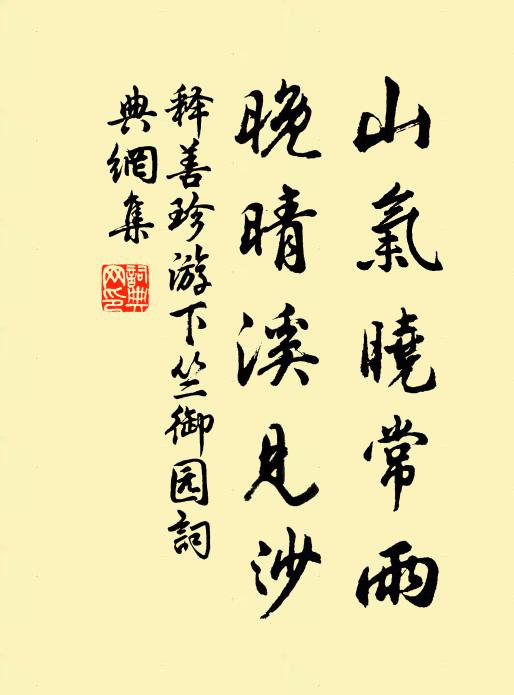 山氣曉常雨
晚晴溪見沙
释善珍游下竺御园詞
典網集
詞典網印